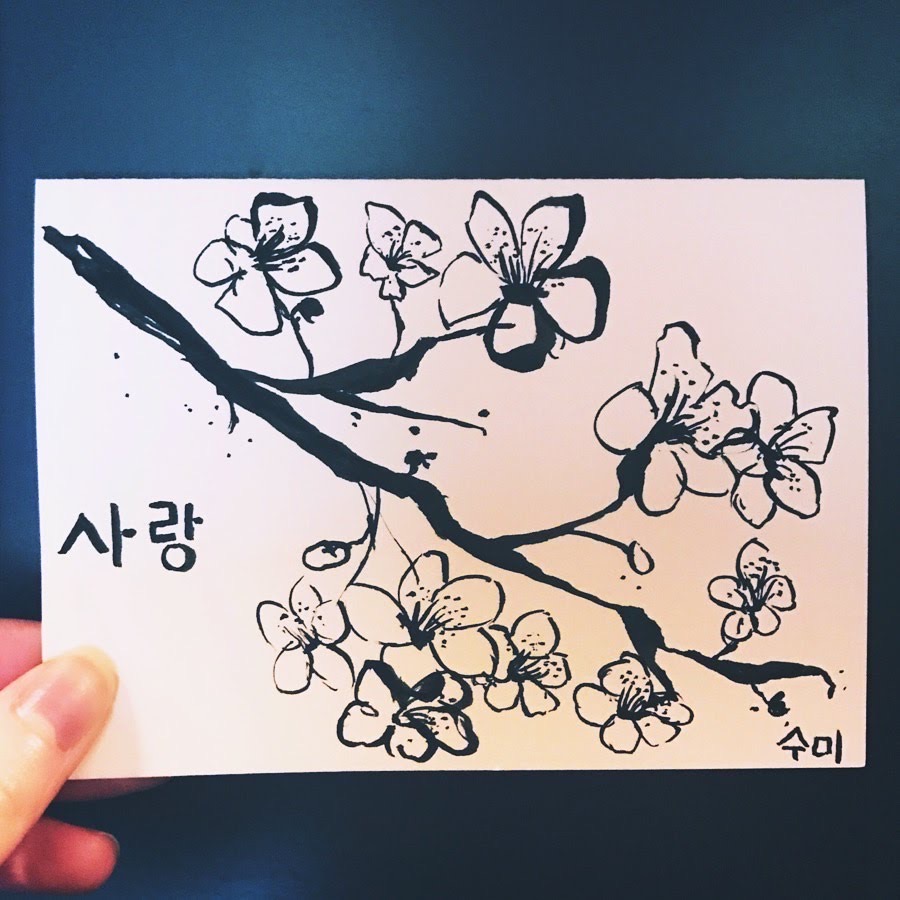 사랑
수미